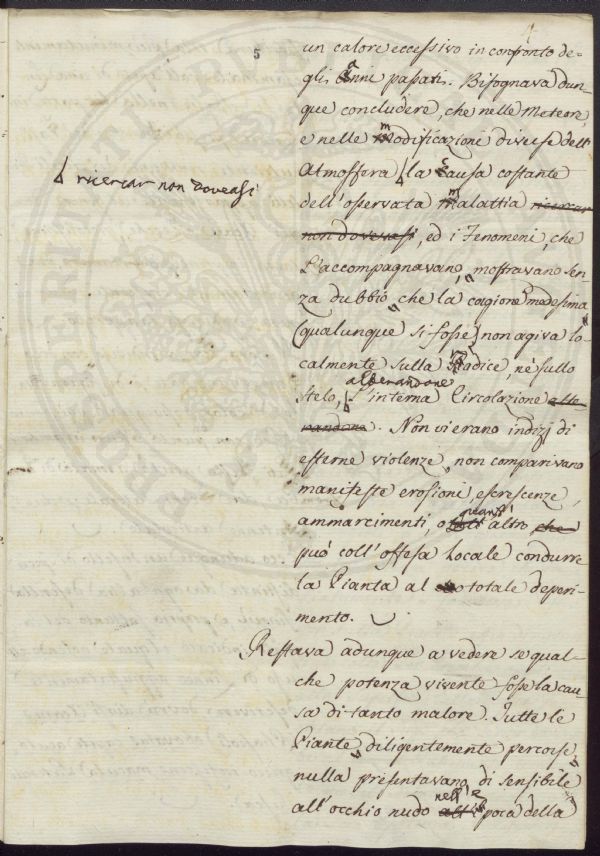 5
un calore eccessivo in confronto de-
gli anni passati. Bisognava dun-
que concludere, che nelle Meteore,
e nelle modificazioni diverse dell'
Atmosfera la causa costante
ricercar non doveasi
dell'osservata malattia ricercar
non dovevasi, ed i Fenomeni, che
l'accompagnavano, mostravano sen-
za dubbio, che la cagione medesima
(qualunque si fosse) non agiva lo-
calmente sulla Radice, nè sullo
alterandone
stelo, l'interna Circolazione alte-
randone. Non vi erano indizj di
esterne violenze, non comparivano
manifeste erosioni, escrescenze,
ammarcimenti, o quant' altro che
può coll'offesa locale condurre
la Pianta al totale deperi-
mento.
Restava adunque a vedere se qual-
che potenza vivente fosse la cau-
sa di tanto malore. Tutte le
Piante diligentemente percorse,
nulla presentavano di sensibile
all'occhio nudo nell'epoca della